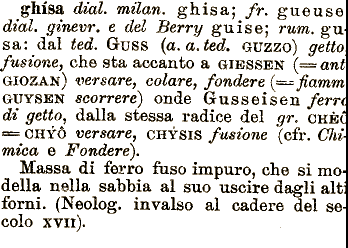 ghísa dial. milan. ghisa; fr. gueuse
dial. ginevr. e del Berry guise; rum. gu-
sa: dal ted. GUSS (a. a. ted. GUZZO) getto
fusione, che sta accanto a GIESSEN (= ant
GIOZAN) versare, colare, fondere (= fiamm
GUYSEN scorrere) onde Gusseisen ferro
di getto, dalla stessa radice del gr. CHÈÔ
= CHÝÔ versare, CHÝSIS fusione (cfr. Chi-
mica e Fondere).
Massa di ferro fuso impuro, che si mo-
della nella sabbia al suo uscire dagli alti
forni. (Neolog. invalso al cadere del se-
colo XVII).